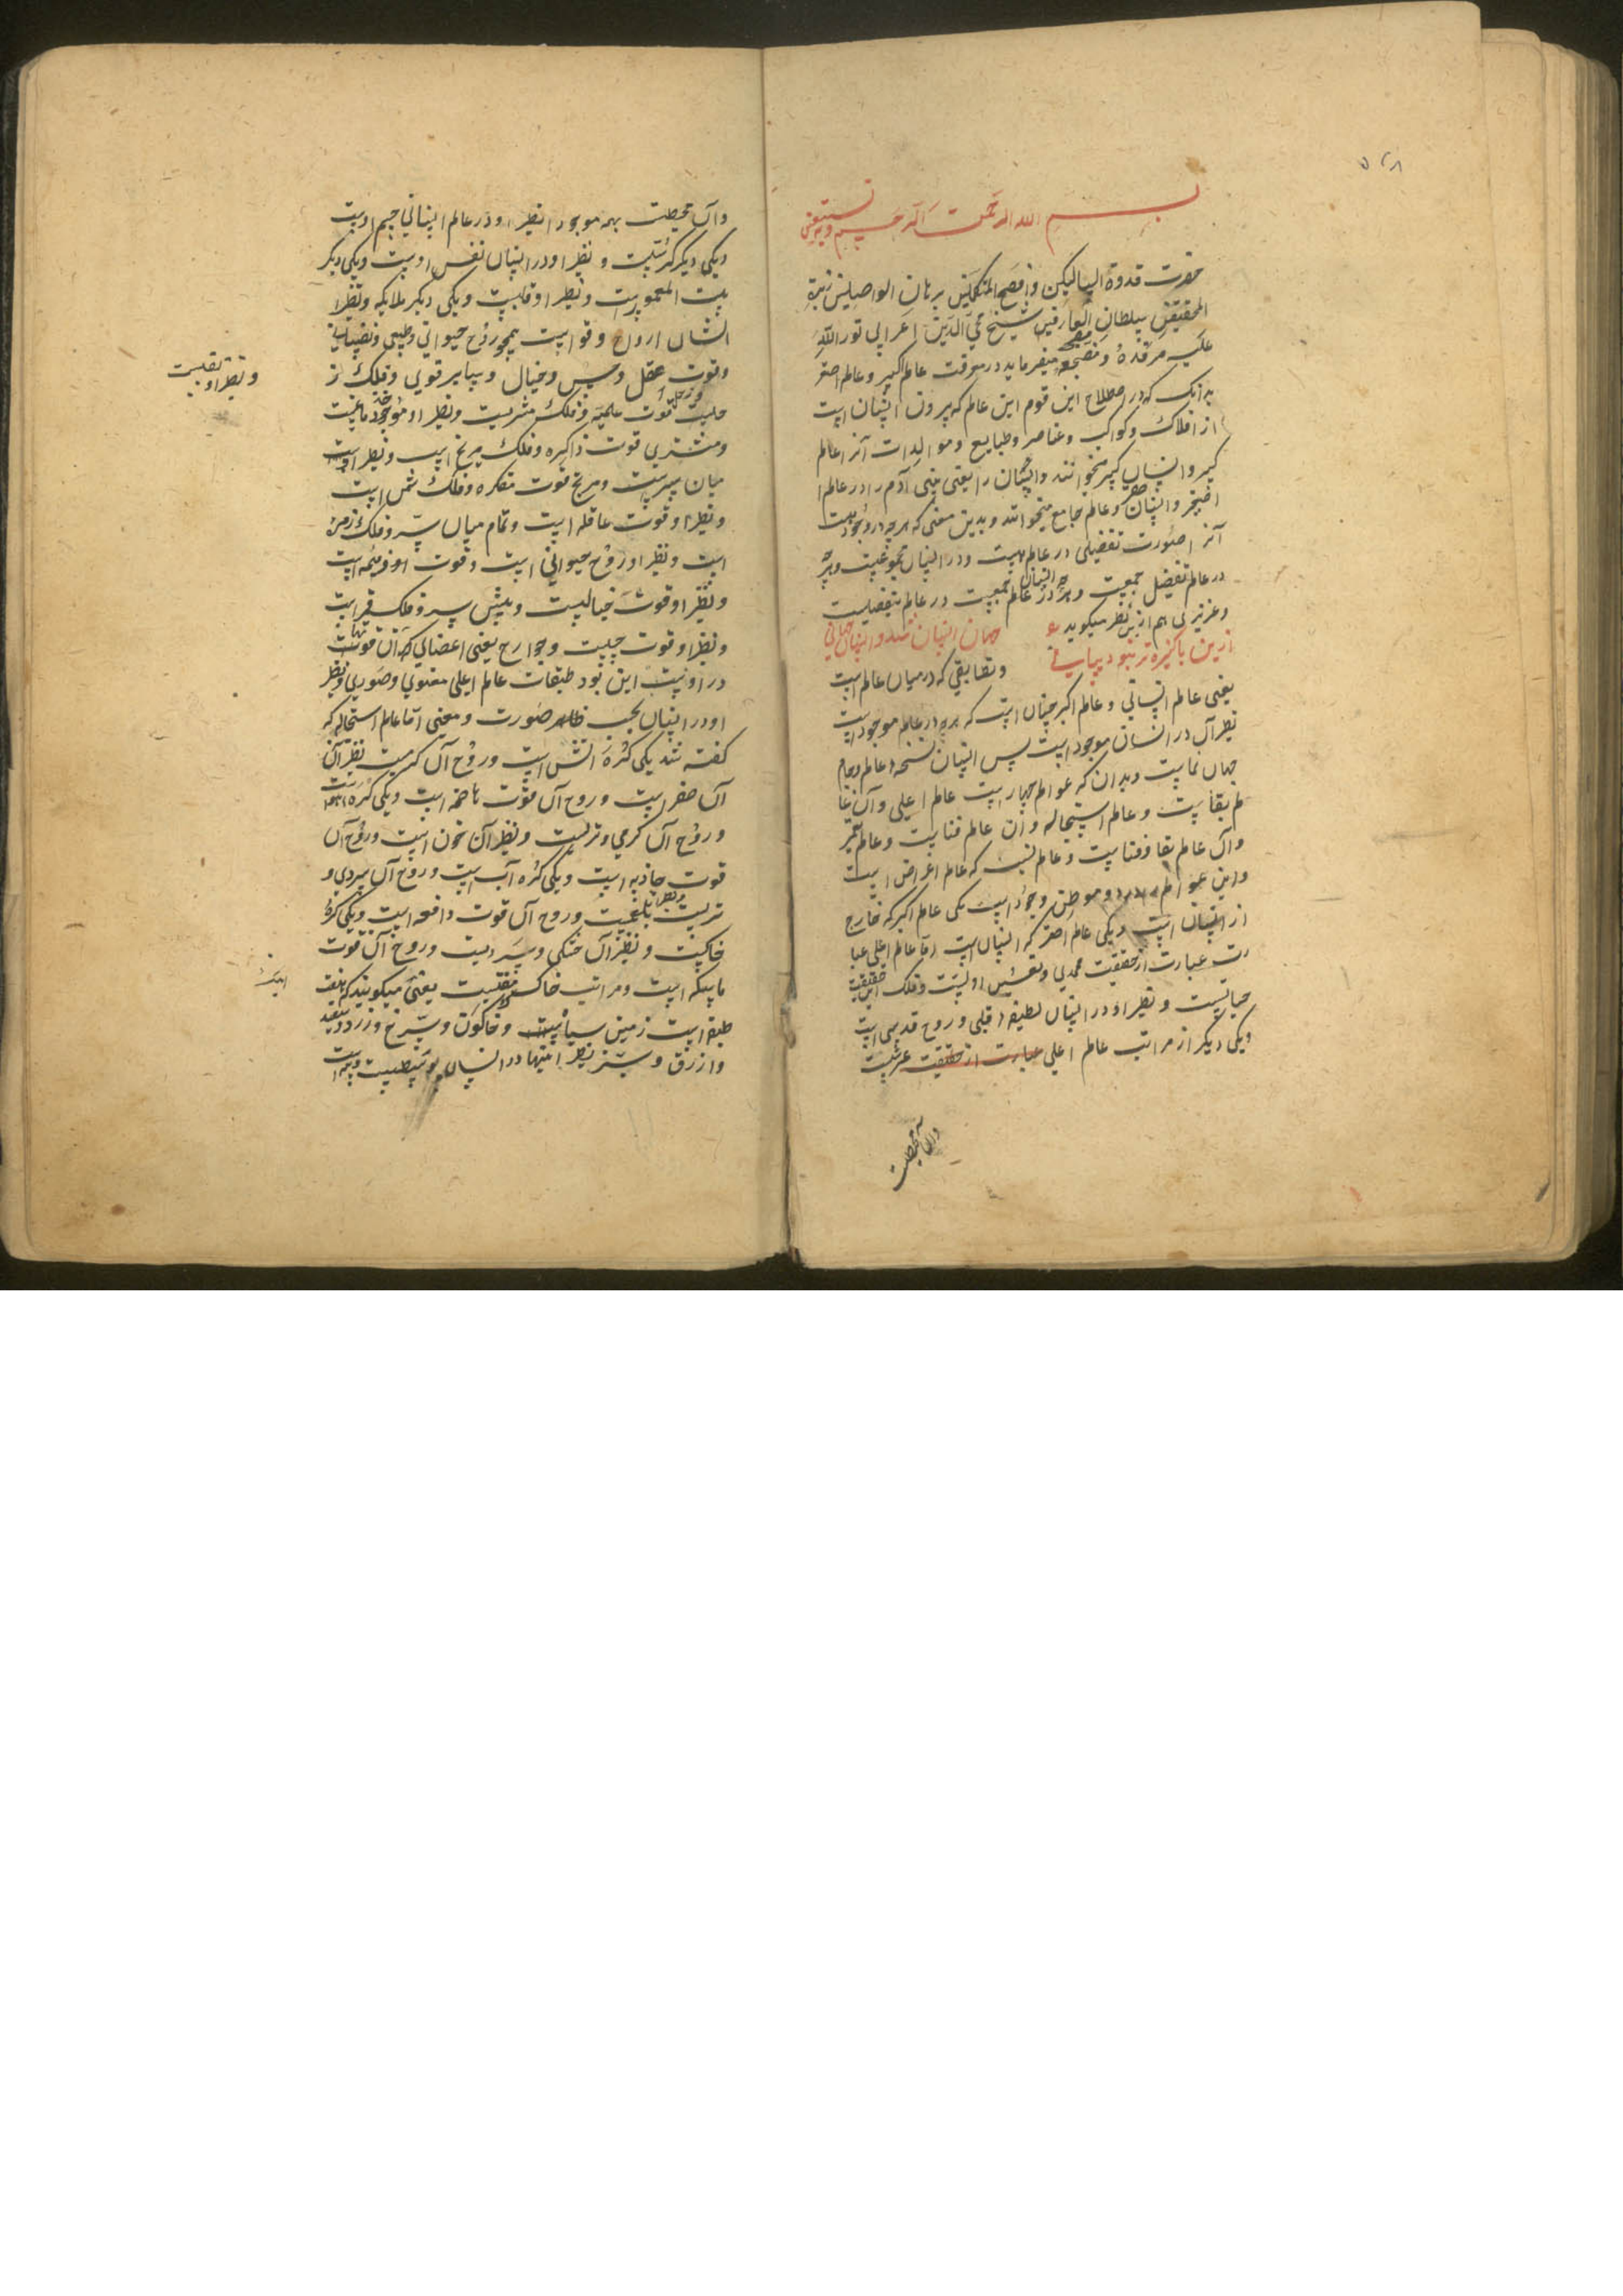 بسم الله الرحمن الرحیم وبه نستعین
حضرت قدوة السالکین وافصح المتکلمین برهان الواصلین زبدة
المحققین سلطان العارفین شیخ محی الدین اعرابی نور الله
علیه مرقده ومضجعه میفرماید در معرفت عالم کبیر وعالم اصغر
بدانک که در اصطلاح این قوم این عالم که بیرون انسان است
از افلاک وکواکب وعناصر وطبایع وموالیدات آنرا عالم
کبیر وانسان کبیر میخوانند وانسان را یعنی بنی آدم را در عالم
اصغر وانسان صغیر وعالم جامع میخوانند وبدین معنی که هرچه در وجودست
آنرا صورت تفضیلی در عالم است ودر انسان مجموعیست وهرچه
در عالم تفضیل جمعیت وهرچه در عالم انسان جمعیت در عالم تفصیلست
وعزیزی هم ازین نظر میگوید
جهان انسان شد وانسان جهانی
ازین پاکیزه تر نبود بیانی
وتطابقی که در میان عالم است
یعنی عالم انسانی وعالم اکبر چنان است که هرچه در عالم موجود است
نظیر آن در انسان موجود است پس انسان نسخه عالم وجام
جهان نماست وبدان که عوالم چهار است عالم اعلی وآن عا
لم بقاست وعالم استحاله وان عالم فناست وعالم تعمیر
وآن عالم بقا وفناست وعالم نسب که عالم اعراض است
واین عوالم را در دو موطن وجود است یکی عالم اکبر که خارج
از انسان است ویکی عالم اصغر که انسان است اما عالم اعلی عبا
رت عبارت از حقیقت محمدی وتعین اولیست وفلک این حقیقت
حیاتیست ونظیر او در انسان لطیفه قلبی وروح قدسی است
ویکی دیگر از مراتب عالم اعلی عبارت از حقیقت عرشیت
وآن محیطست
وآن محیطت بهمه موجود انظیر او در عالم انسانی جسم اوست
ویکی دیگر کرسیت ونظیر او در انسان نفس اوست ویکی دیگر
بیت المعمور است ونظیر او قلبست ویکی دیگر ملایکه ونظیر
ایشان ارواح وقواست همچو روح حیوانی وطبیعی ونفسانی
وقوت عقل وحس وخیال وسایر قوی وفلک ز
حلیت قوت علمیه وفلک مشتریست ونظیر او موخر دماغیت
ومشتری قوت ذاکره وفلک مریخ است ونظیر اوست
میان سرست ومریخ قوت مفکره وفلک شمس است
ونظیر او قوت عاقله است وتمام میان سر وفلک زهره
است ونظیر او روح حیوانی است وقوت او وهمه است
ونظیر او قوت خیالیست وپیش سر وفلک قمر است
ونظیر او قوت حسیت وجوارح یعنی اعضائی که آن قوتها
در اوست این بود طبقات عالم اعلی معنوی وصوری ونظیر
او در انسان بحسب ظاهر صورت ومعنی اما عالم استحاله که
کفته شد یکی کره آتش است وروح آن کرمیست نظیر آن
آن صفراست وروح آن قوت هاضمه است ویکی کره هواست
وروح آن کرمی وتریست ونظیر آن خون است وروح آن
قوت جاذبه است ویکی کره آب است وروح آن سردی و
تریست ونظیر بلغمیت وروح آن قوت دافعه است ویکی کره
خاکیت ونظیر آن خشکی وسردیست وروح آن قوت
ماسکه است ومراتب خاک هفتست یعنی میکویند که هفت
طبقه است زمین سیاهست وخاکون وسرخ وزرد وسفید
وازرق وسبز نظیر اینها در انسان پوستست وپیه است
ونظیر او تقلیست